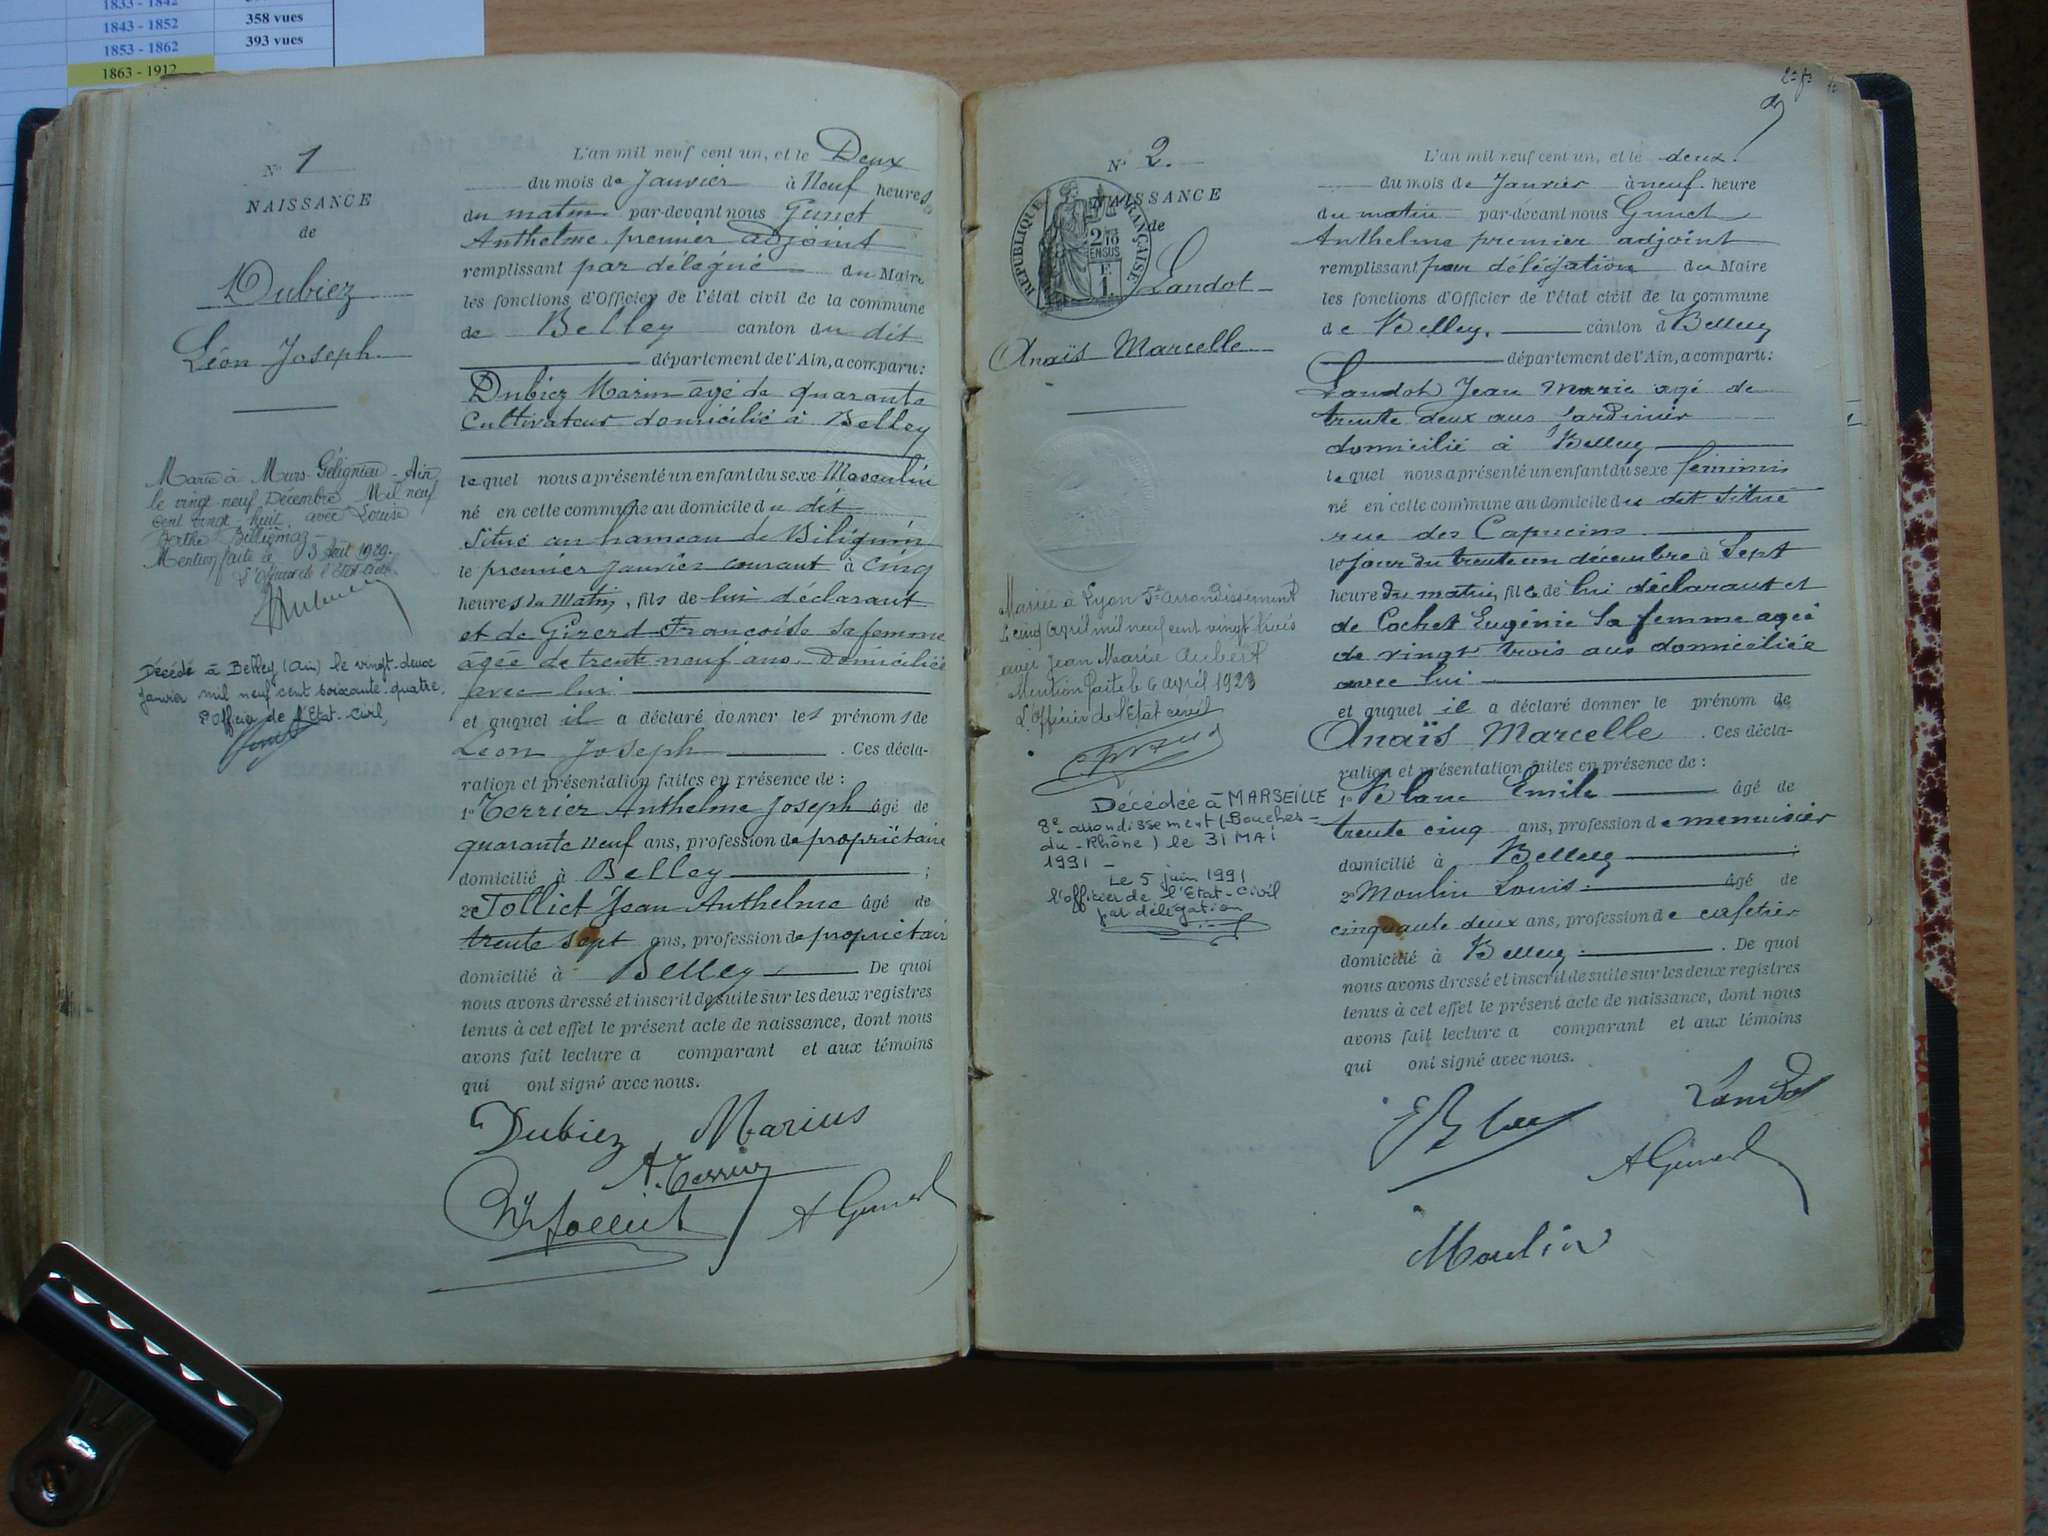 1833 - 1842
1843 - 1852
358 vues
1853 - 1862
393 vues
1863 - 1912
N° 1
NAISSANCE
de
Dubiez
Léon Joseph
Marié à Murs-Gélignieu - Ain
le vingt neuf Décembre Mil neuf
cent vingt huit avec Louise
Berthe Billiemaz
Mention faite le 3 1929.
L'Officier de l'Etat Civil
Décédé à Belley (Ain) le vingt-deux
Janvier mil neuf cent soixante-quatre.
l'Officier de l'Etat-Civil,
L'an mil neuf cent un, et le Deux
du mois de Janvier à Neuf heures
du matin par-devant nous
Anthelme premier adjoint
remplissant par délégué du Maire
les fonctions d'Officier de l'état civil de la commune
de Belley canton du dit
département de l'Ain, a comparu:
Dubiez Marin âgé de quarante
Cultivateur domicilié à Belley
lequel nous a présenté un enfant du sexe Masculin
né en cette commune au domicile du dit
Situé au hameau de Billignin
le premier Janvier courant à Cinq
heures du Matin, fils de lui déclarant
et de Girerd Françoise sa femme
âgée de trente neuf ans Domiciliée
avec lui
et auquel il a déclaré donner les prénoms de
Léon Joseph . Ces décla-
ration et présentation faites en présence de :
1° Terrier Anthelme Joseph âgé de
quarante neuf ans, profession de propriétaire
domicilié à Belley ;
2e Jolliet Jean Anthelme âgé de
trente sept ans, profession de propriétaire
domicilié à Belley De quoi
nous avons dressé et inscrit de suite sur les deux registres
tenus à cet effet le présent acte de naissance, dont nous
avons fait lecture a comparant et aux témoins
qui ont signé avec nous.
Dubiez Marius
A. Terrier
Jolliet
N° 2.
NAISSANCE
de
RÉPUBLIQUE FRANÇAISE
2/10
EN SUS
F.
1.
Landot
Anaïs Marcelle
Mariée à Lyon 5e arrondissement
le cinq avril mil neuf cent vingt trois
avec Jean Marie Aubert
Mention faite le 6 avril 1923
L'Officier de l'Etat civil
Décédée à MARSEILLE
8e arrondissement (Bouches-
du-Rhône) le 31 MAI
1991 -
Le 5 juin 1991
l'officier de l'Etat-Civil
par délégation
L'an mil neuf cent un, et le deux
du mois de Janvier à neuf heure
du matin par-devant nous
Anthelme premier adjoint
remplissant par délégation du Maire
les fonctions d'Officier de l'état civil de la commune
de Belley, canton d Belley
département de l'Ain, a comparu:
Landot Jean Marie agé de
trente deux ans Jardinier
domicilié à Belley
lequel nous a présenté un enfant du sexe féminin
né en cette commune au domicile du dit Situé
rue des Capucins
le jour du trente un décembre à Sept
heure du matin, fille de lui déclarant et
de Cochet Eugénie Sa femme agée
de vingt trois ans domiciliée
avec lui
et auquel il a déclaré donner le prénom de
Anaïs Marcelle . Ces décla-
ration et présentation faites en présence de :
1° Emile âgé de
trente cinq ans, profession de menuisier
domicilié à Belley ;
2° Moulin Louis âgé de
cinquante deux ans, profession de cafetier
domicilié à Belley . De quoi
nous avons dressé et inscrit de suite sur les deux registres
tenus à cet effet le présent acte de naissance, dont nous
avons fait lecture a comparant et aux témoins
qui ont signé avec nous.
Landot
Moulin